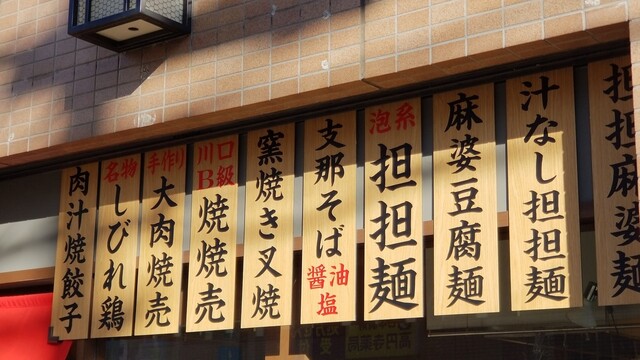 担担麻婆麺
汁なし担担麺
麻婆豆腐麺
泡系
担担麺
支那そば
醤油
塩
窯焼き叉焼
川口
B級
焼焼売
手作り
大肉焼売
名物
しびれ鶏
肉汁焼餃子